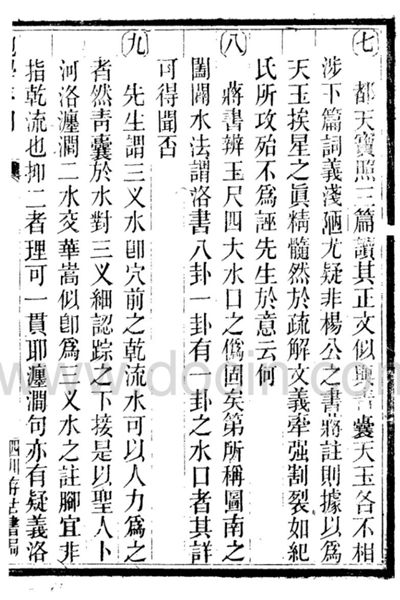 ㊆
都天寶照三篇讀其正文似與青囊天玉各不相
涉下篇詞義淺陋尤疑非楊公之書蔣註則據以爲
天玉挨星之眞精髓然於疏解文義牽强制裂如紀
氏所攻殆不爲誣先生於意云何
㊇
蔣書辨玉尺四大水口之僞固矣第所稱圖南之
闔闢水法謂洛書八卦一卦有一卦之水口者其詳
可得聞否
㊈
先生謂三叉水卽穴前之乾流水可以人力爲之
者然靑囊於水對三叉細認踪之下接是以聖人卜
河洛瀍澗二水交華嵩似卽爲三叉水之註腳宜非
指乾流也抑二者理可一貫耶瀍澗句亦有疑義洛
四川存古書局
www.docin.com